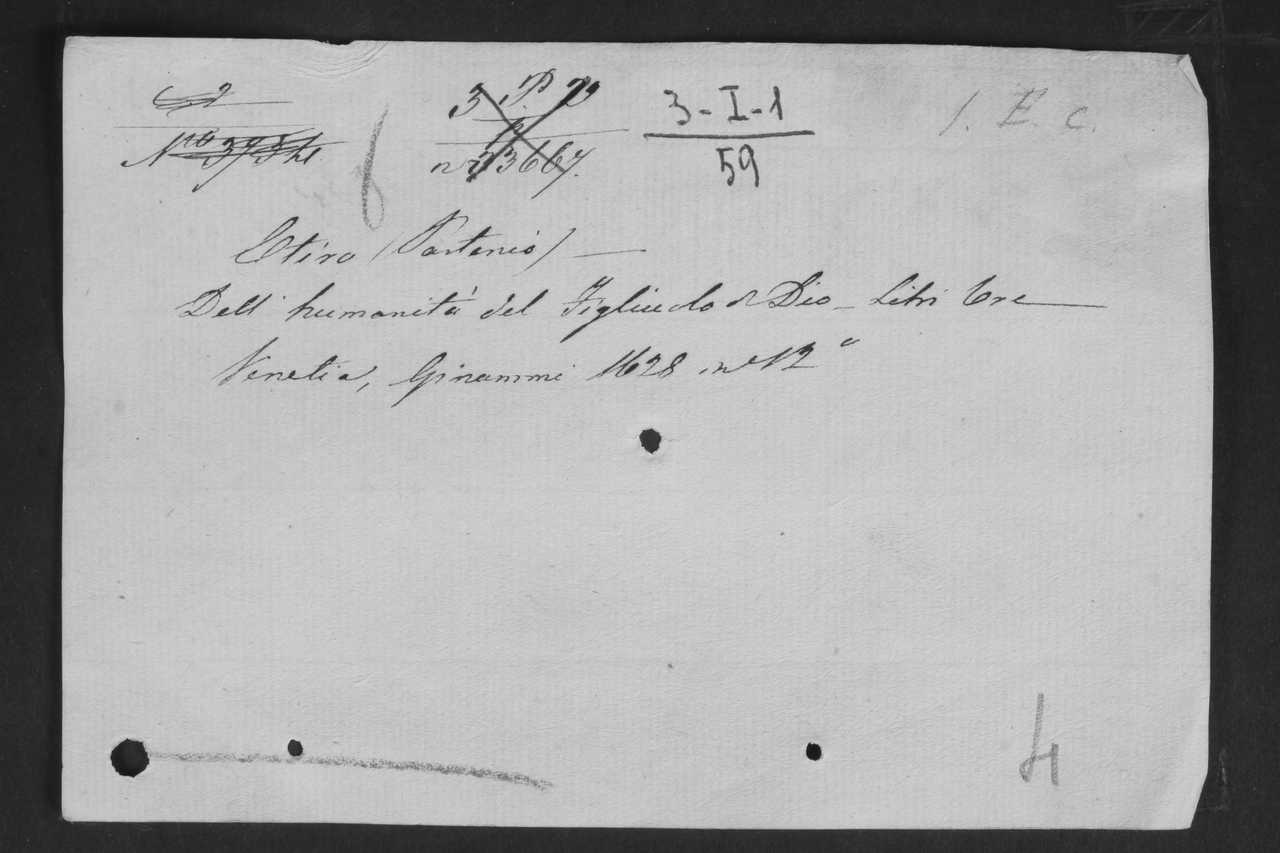 3-I-1
59
I. E. c.
Etiro (Partenio) —
Dell' humanità del Figliuolo di Dio - Libri tre —
Venetia, Ginammi 1628 in 12°
4